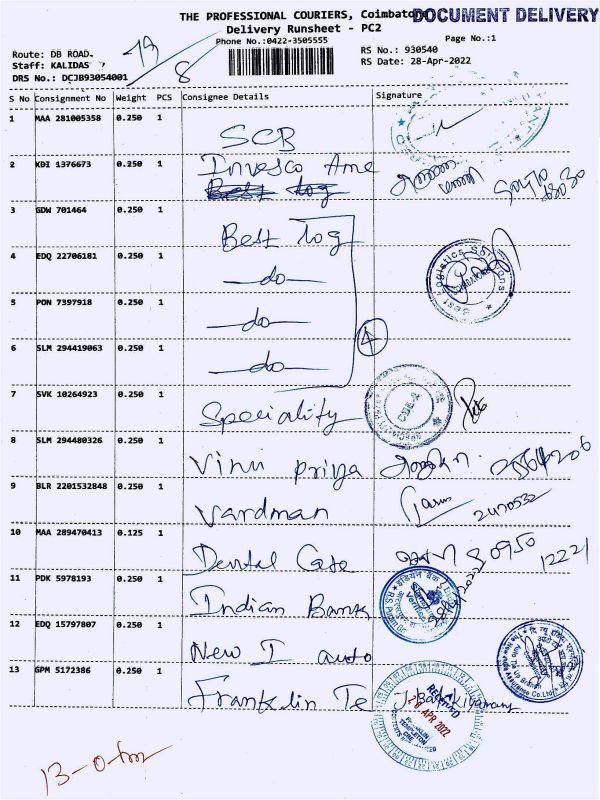 THE PROFESSIONAL COURIERS, Coimbato
DOCUMENT DELIVERY
Delivery Runsheet - PC2
Phone No.:0422-3505555
Page No.:1
Route: DB ROAD
Staff: KALIDAS
DRS No.: DCJB93054001
RS No.: 930540
RS Date: 28-Apr-2022
S No Consignment No Weight PCS Consignee Details Signature
1 MAA 281005358 0.250 1
SCB
2 KDI 1376673 0.250 1
Invesco Ame
Best log
3 GDW 701464 0.250 1
Best log
4 EDQ 22706181 0.250 1
do
5 PON 7397918 0.250 1
do
6 SLM 294419063 0.250 1
do
4
7 SVK 10264923 0.250 1
Speciality
8 SLM 294480326 0.250 1
Vinu Priya
9 BLR 2201532848 0.250 1
Vardman
10 MAA 289470413 0.125 1
Dental Case
12221
11 PDK 5978193 0.250 1
Indian Bank
12 EDQ 15797807 0.250 1
New I auto
13 GPM 5172386 0.250 1
Franklin Te
RECEIVED
APR 2022
FRANKLIN
TEMPLETON